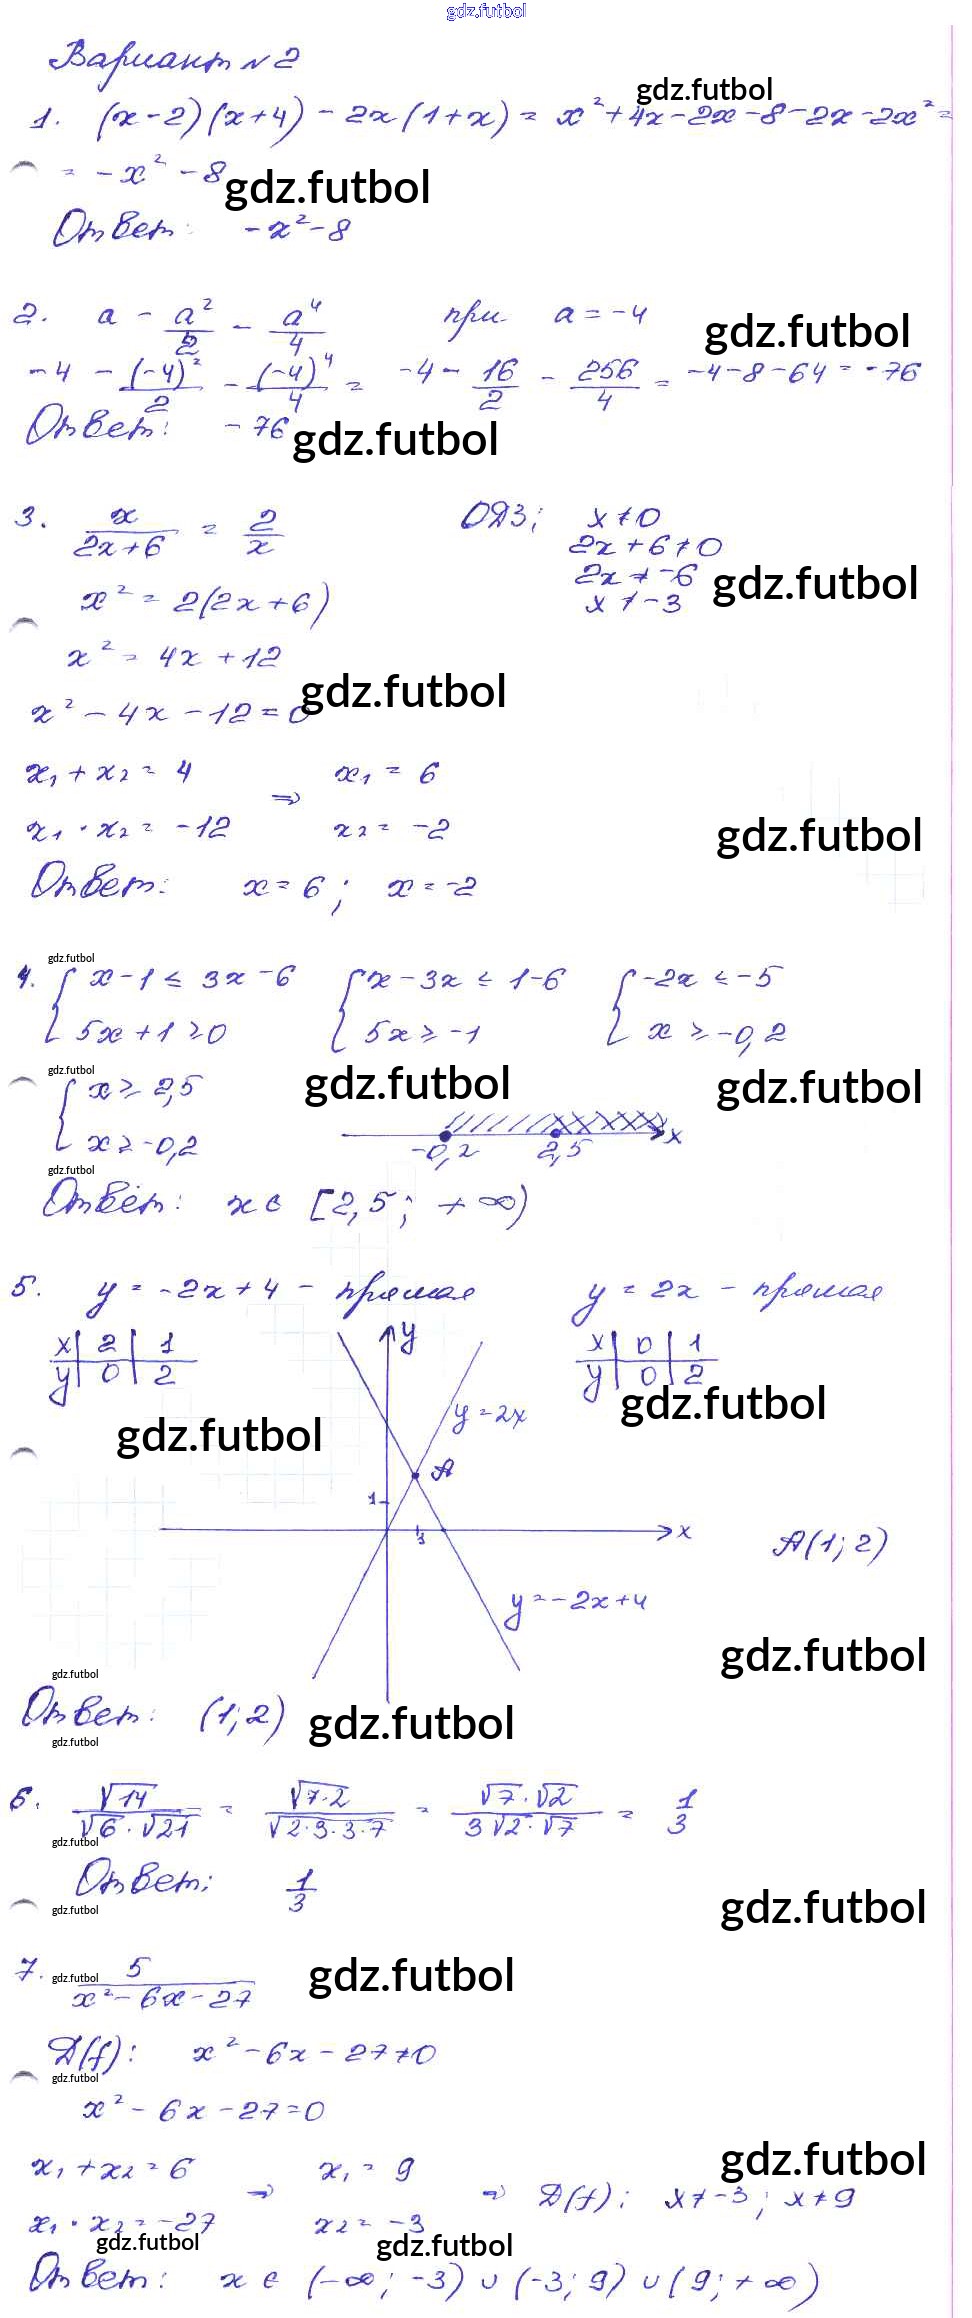 gdz.futbol
Вариант №2
gdz.futbol
1. (x-2)(x+4) - 2x(1+x) = x²+4x-2x-8-2x-2x² =
= -x² - 8
gdz.futbol
Ответ: -x²-8
2. a - a²/2 - a⁴/4 при a = -4
gdz.futbol
-4 - (-4)²/2 - (-4)⁴/4 = -4 - 16/2 - 256/4 = -4-8-64 = -76
Ответ: -76
gdz.futbol
3. x/(2x+6) = 2/x ОДЗ: x≠0
2x+6≠0
2x≠-6
gdz.futbol
x≠-3
x² = 2(2x+6)
x² = 4x+12
gdz.futbol
x² - 4x - 12 = 0
x₁ + x₂ = 4 ⇒ x₁ = 6
x₁ · x₂ = -12 x₂ = -2
gdz.futbol
Ответ: x = 6; x = -2
gdz.futbol
4. { x-1 ≤ 3x-6 { x-3x ≤ 1-6 { -2x ≤ -5
5x+1 ≥ 0 5x ≥ -1 x ≥ -0,2
gdz.futbol
{ x ≥ 2,5
gdz.futbol gdz.futbol
x ≥ -0,2
-0,2 2,5 x
gdz.futbol
Ответ: x ∈ [2,5; +∞)
5. y = -2x+4 - прямая y = 2x - прямая
x | 2 | 1 y x | 0 | 1
y | 0 | 2 y | 0 | 2
gdz.futbol
y = 2x
gdz.futbol
A
1
1
x
A(1; 2)
y = -2x+4
gdz.futbol
gdz.futbol
Ответ: (1; 2)
gdz.futbol
gdz.futbol
6. √14/(√6·√21) = √(7·2)/√(2·3·3·7) = (√7·√2)/(3√2·√7) = 1/3
gdz.futbol
Ответ: 1/3
gdz.futbol
gdz.futbol
7. 5/(x²-6x-27)
gdz.futbol
gdz.futbol
D(f): x²-6x-27≠0
gdz.futbol
x²-6x-27=0
gdz.futbol
x₁ + x₂ = 6 ⇒ x₁ = 9 ⇒ D(f): x≠-3; x≠9
x₁ · x₂ = -27 x₂ = -3
gdz.futbol gdz.futbol
Ответ: x ∈ (-∞; -3) ∪ (-3; 9) ∪ (9; +∞)